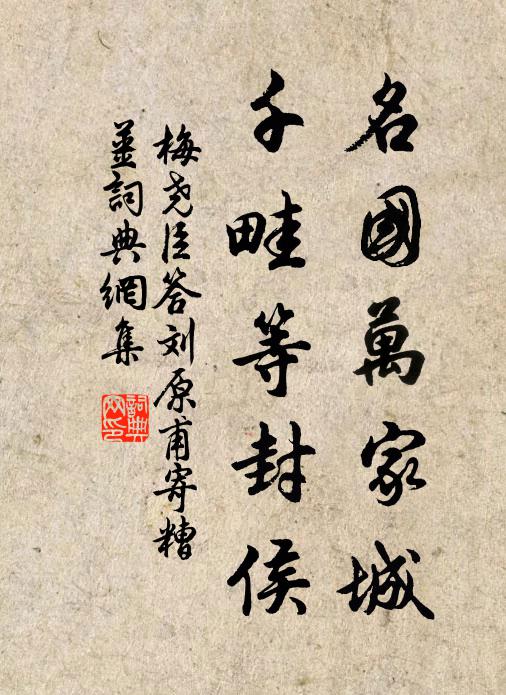 名國萬家城
千畦等封侯
梅尧臣答刘原甫寄糟
薑詞典網集
詞典网印